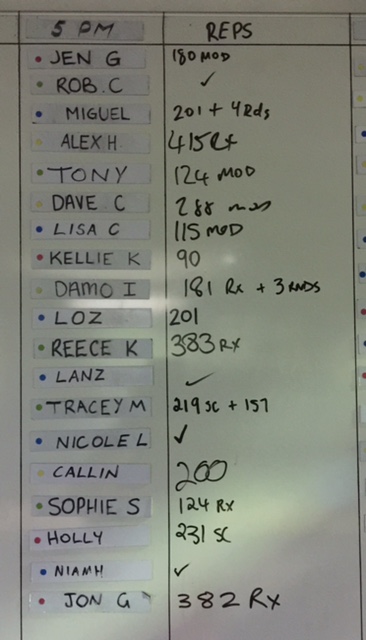 5 PM REPS
JEN G 180 MOD
ROB.C ✓
MIGUEL 201 + 4Rds
ALEX H. 415 Rx
TONY 124 MOD
DAVE C 288 mod
LISA C 115 MOD
KELLIE K 90
DAMO I 181 Rx + 3 RNDS
LOZ 201
REECE K 383 Rx
LANZ ✓
TRACEY M 219 SC + 157
NICOLE L ✓
CALLIN 200
SOPHIE S 124 RX
HOLLY 231 SC
NIAMH ✓
JON G 382 Rx